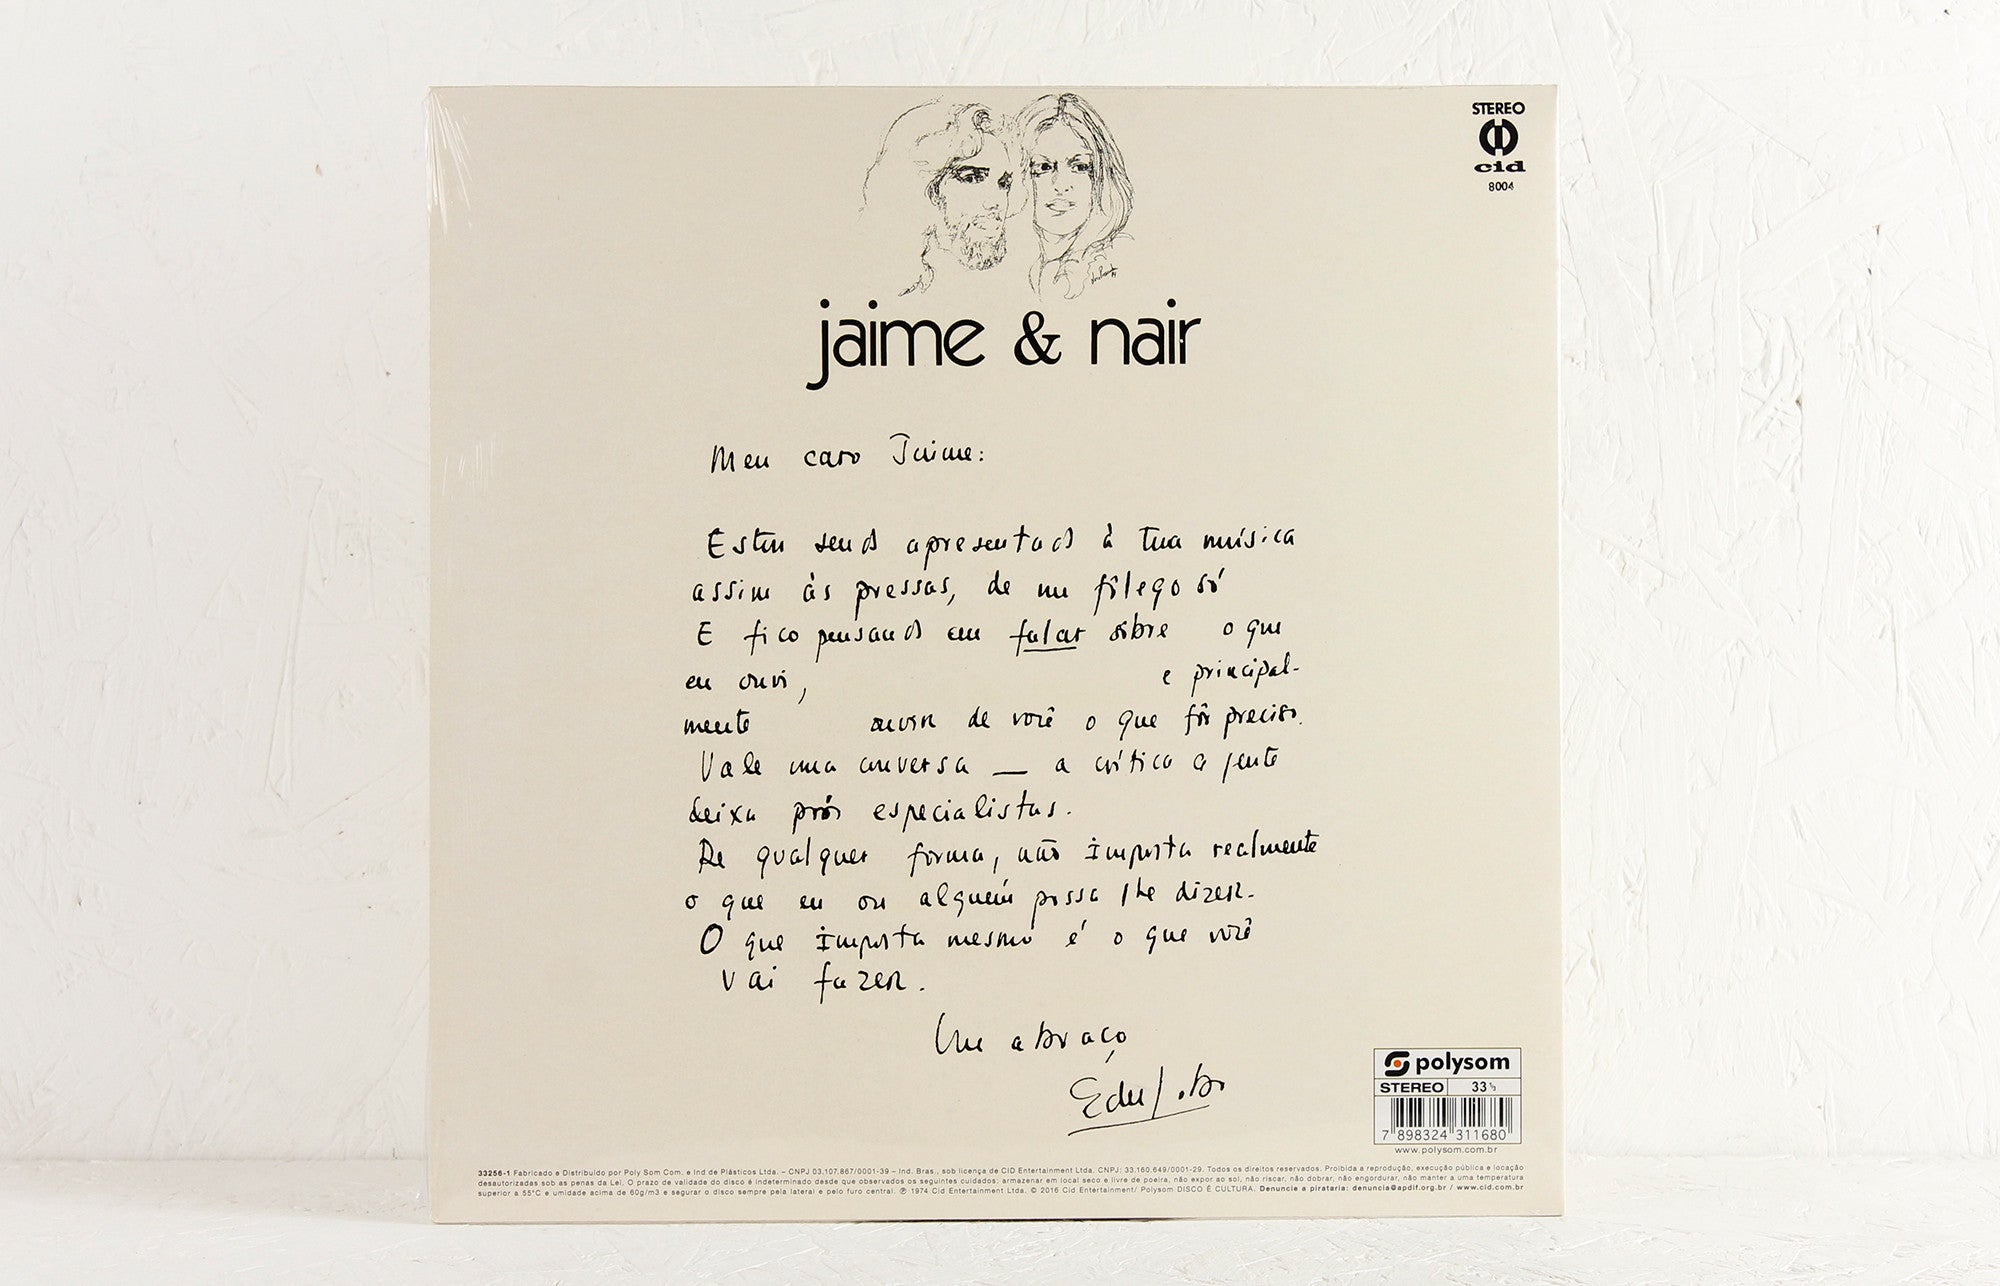 STEREO
cid
8004
jaime & nair
Meu caro Jaime:
Estou sendo apresentado à tua música
assim às pressas, de um fôlego só
E fico pensando em falar sôbre o que
eu ouvi, e principal-
mente ouvir de você o que fôr preciso.
Vale uma conversa — a crítica a gente
deixa prós especialistas.
De qualquer forma, não importa realmente
o que eu ou alguém possa lhe dizer.
O que importa mesmo é o que você
vai fazer.
Um abraço
Edu Lobo
polysom
STEREO 33 ⅓
7 898324 311680
www.polysom.com.br
33256-1 Fabricado e Distribuído por Poly Som Com. e Ind de Plásticos Ltda. – CNPJ 03.107.867/0001-39 – Ind. Bras., sob licença de CID Entertainment Ltda. CNPJ: 33.160.649/0001-29. Todos os direitos reservados. Proibida a reprodução, execução pública e locação
desautorizadas sob as penas da Lei. O prazo de validade do disco é indeterminado desde que observados os seguintes cuidados: armazenar em local seco e livre de poeira, não expor ao sol, não riscar, não dobrar, não engordurar, não manter a uma temperatura
superior a 55°C e umidade acima de 60g/m3 e segurar o disco sempre pela lateral e pelo furo central. ℗ 1974 Cid Entertainment Ltda. © 2016 Cid Entertainment/ Polysom DISCO É CULTURA. Denuncie a pirataria: denuncia@apdif.org.br / www.cid.com.br